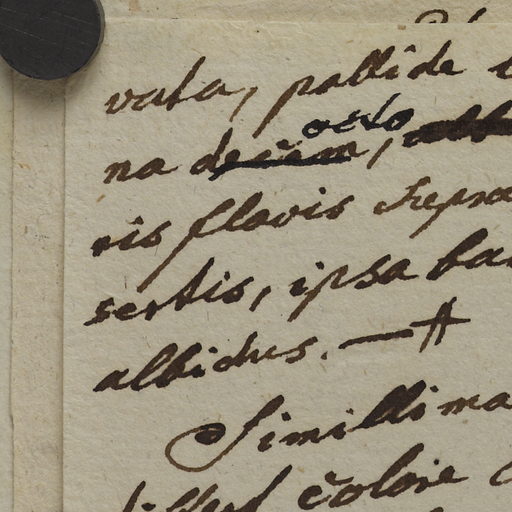 vata, pallide
octo
na decem,
ris flavis supra
sertis, ipsa ba
albidus. —
Simillima
differt colore